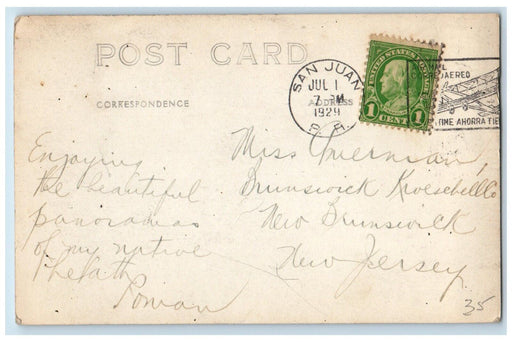 POST CARD
CORRESPONDENCE
ADDRESS
SAN JUAN
JUL 1
7 PM
1929
P. R.
UNITED STATES POSTAGE
1 CENT 1
CORREO AEREO
AHORRA
Enjoying
the beautiful
panoramas
of my native
Miss
Brunswick Kroeschell Co
New Brunswick
New Jersey
35